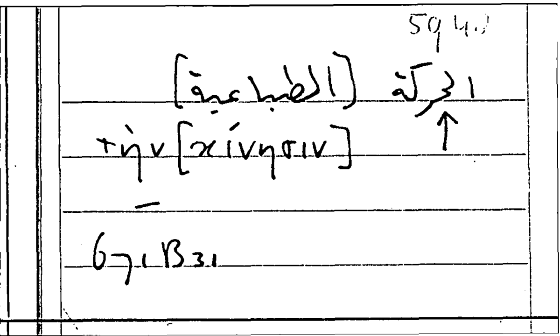 الحركة [الطباعية]
↑
τὴν [κίνησιν]
–
671 B31